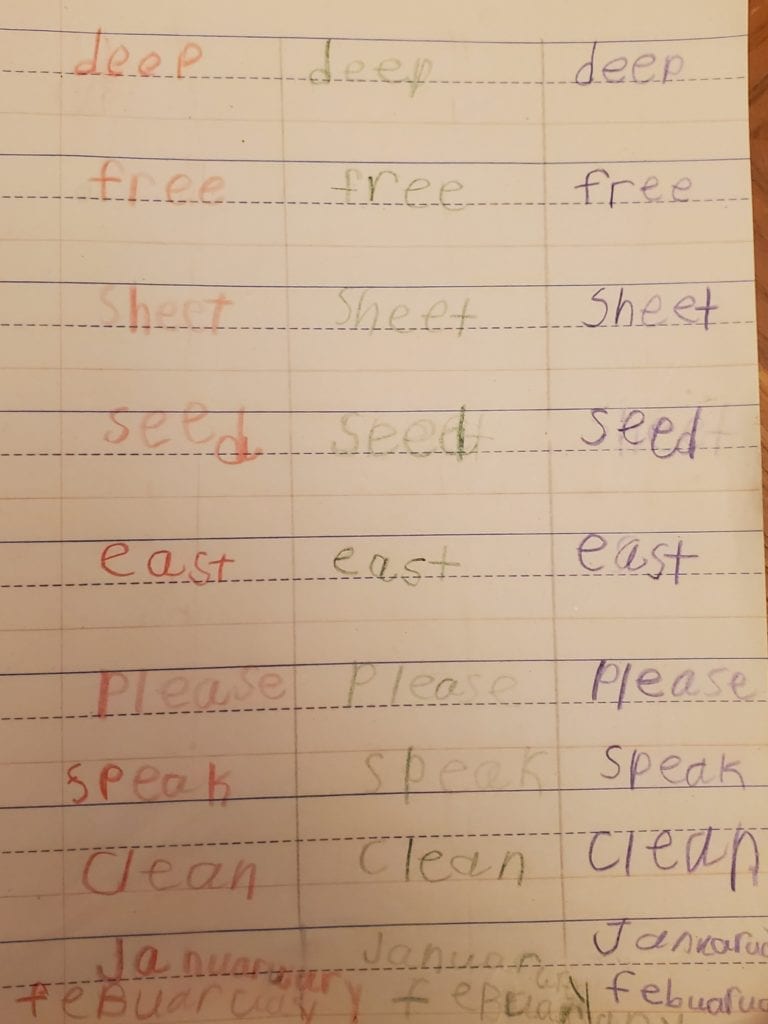 deep deep deep
free free free
Sheet Sheet Sheet
seed seed seed
east east east
Please Please Please
speak speak speak
Clean Clean Clean
January
feBuaruary feBuary febuarua